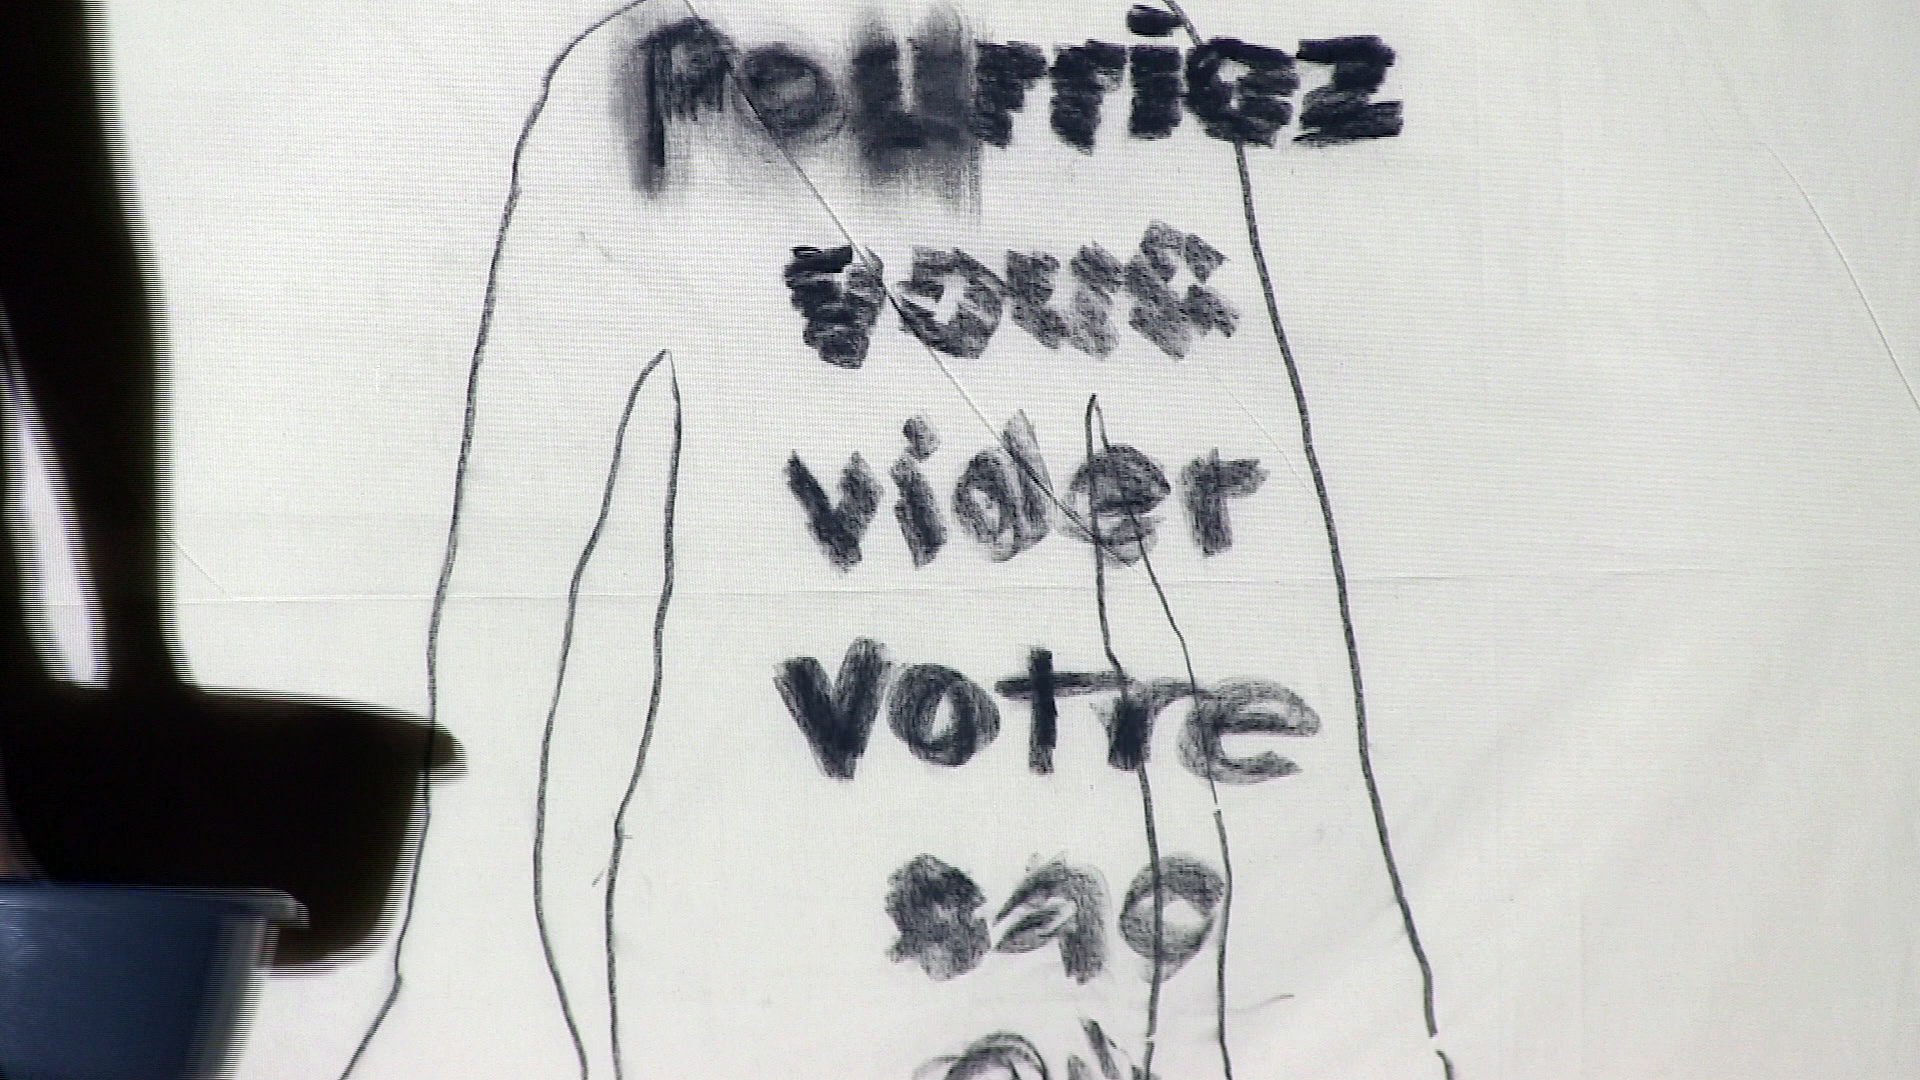 pourriez
vous
vider
votre
sac